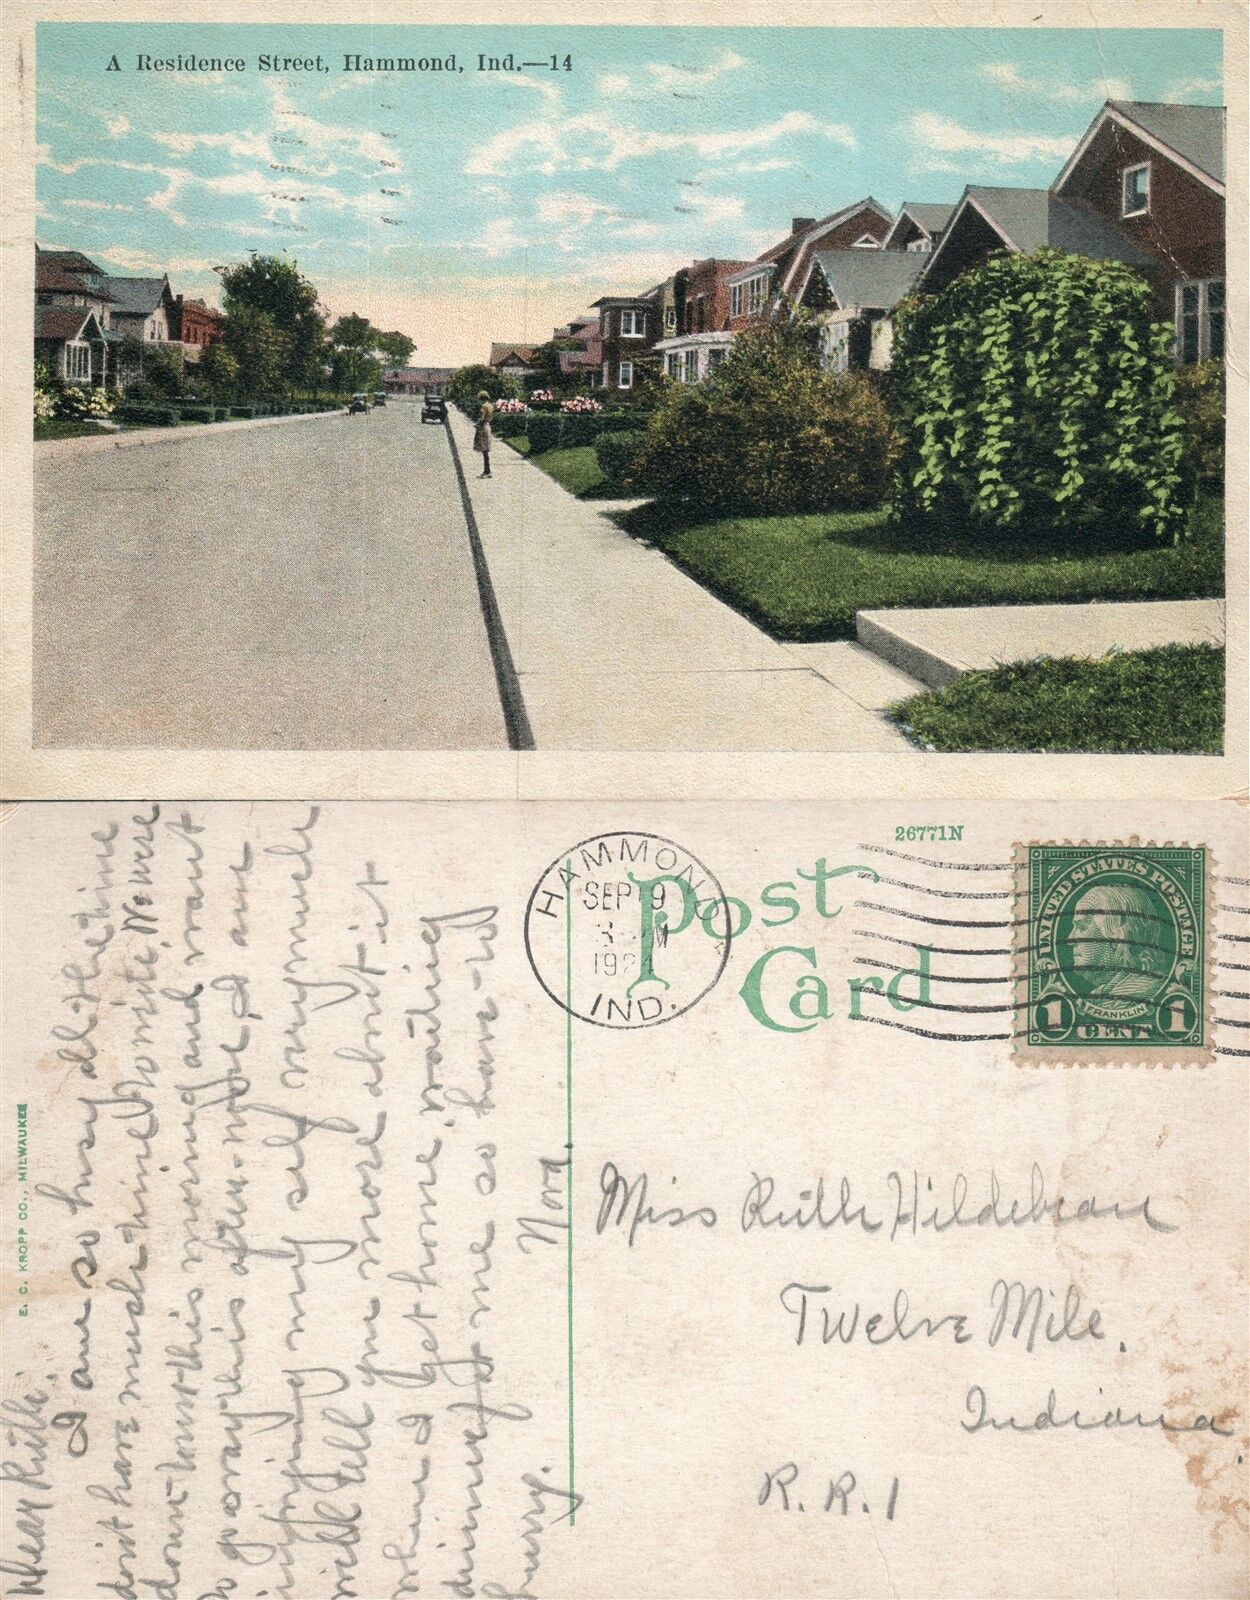 A Residence Street, Hammond, Ind.—14
26771N
Post
Card
HAMMOND
SEP 9
3 M
1924
IND.
UNITED STATES POSTAGE
FRANKLIN
1 CENT 1
E. C. KROPP CO., MILWAUKEE
Dear Ruth:
I am so busy all the time
don't have much time to write. We were
down town this morning and want
to go away this after-noon, I am
injoying my self very much
will tell you more about it
when I get home, waiting
dinner for me so have to
hurry.
Nora.
Miss Ruth Hildebran
Twelve Mile,
Indiana
R. R. 1